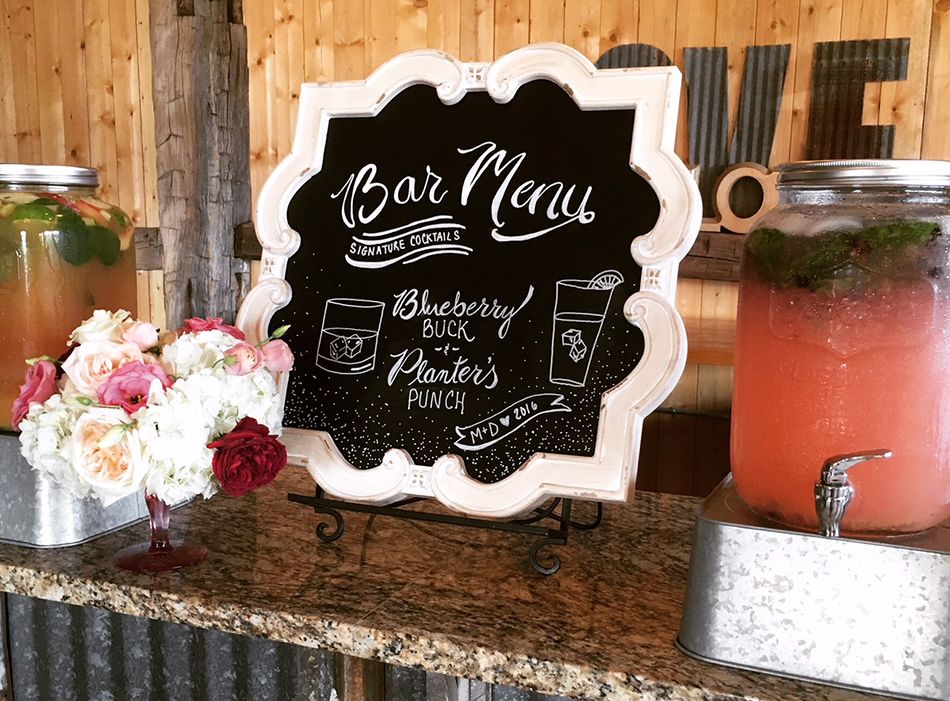 OVE
Bar Menu
SIGNATURE COCKTAILS
Blueberry
BUCK
-&-
Planter's
PUNCH
M+D ♥ 2016